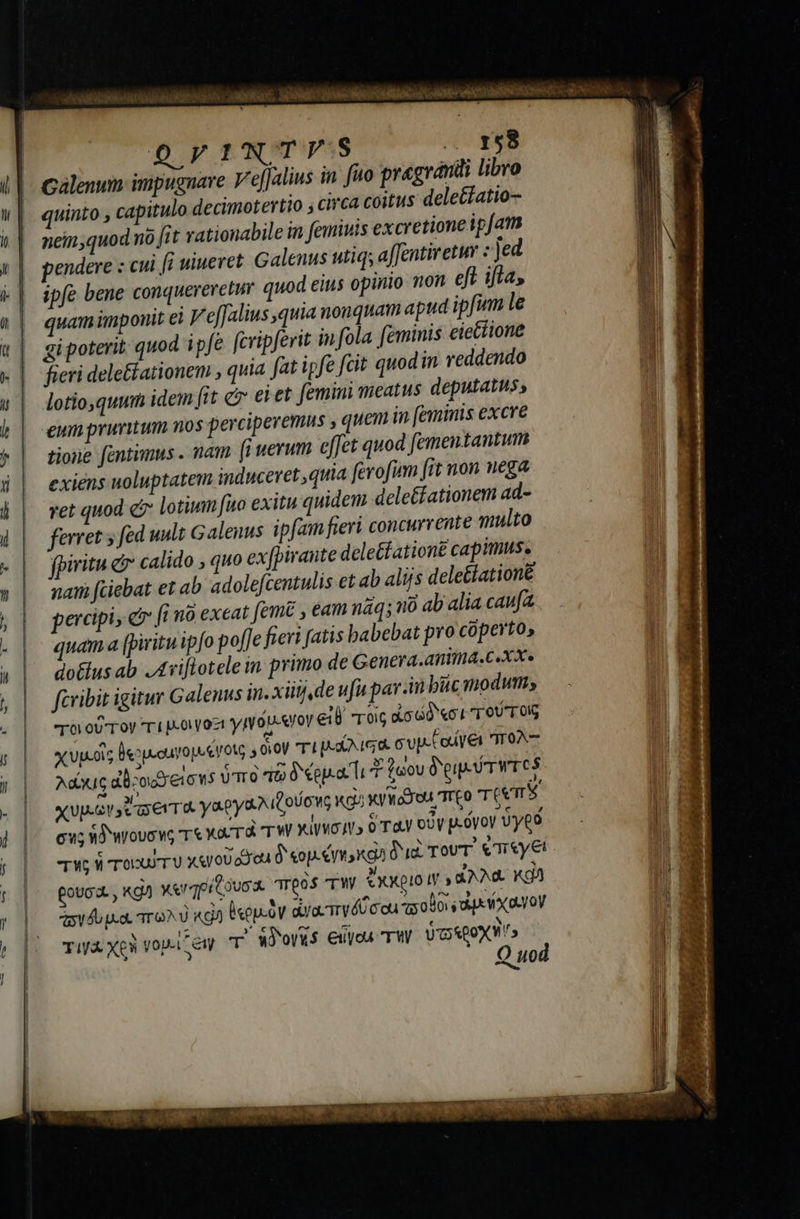 QVINTVS 158
Galenum impugnare Veſſalius in ſuo pręgrandi libro
quinto, capitulo decimotertio, circa coitus delectatio-
nem, quod nō ſit rationabile in feminis excretione ipſam
pendere: cui ſi uiueret Galenus utiq; aſſentiretur: ſed
ipſe bene conquereretur quod eius opinio non eſt iſta,
quam imponit ei Veſſalius, quia nonquam apud ipſum le
gi poterit quod ipſe ſcripſerit in ſola ſeminis eiectione
fieri delectationem, quia ſat ipſe ſcit quod in reddendo
lotio, quum idem ſit & ei et ſemini meatus deputatus,
eum pruritum nos perciperemus, quem in ſeminis excre
tione ſentimus. nam ſi uerum eſſet quod ſemen tantum
exiens uoluptatem induceret, quia ſeroſum ſit non nega
ret quod & lotium ſuo exitu quidem delectationem ad-
ferret, ſed uult Galenus ipſam fieri concurrente multo
ſpiritu & calido, quo exſpirante delectationē capimus.
nam ſciebat et ab adoleſcentulis et ab alijs delectationē
percipi, & ſi nō exeat ſemē, eam nāq; nō ab alia cauſa
quam a ſpiritu ipſo poſſe fieri ſatis habebat pro cōperto,
doctus ab Ariſtotele in primo de Genera. anima. c. xx.
ſcribit igitur Galenus in. xiiij. de uſu par. in hūc modum,
τοιοῦτον τι μοι νόει γινόμενον ἐπὶ τοῖς
χυμοῖς θερμαινομένοις, οἷον τι μάλιστα συμβαίνει πολ-
λάκις ἀθροισθείσης ὑπὸ τῷ δέρματι τοῦ ζώου δριμύτητος
χυμῶν,
τῆς τοιαύτη
πνεῦμα πολὺ καὶ θερμὸν
τινα χρὴ νομίζειν
Quod